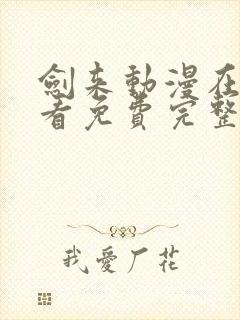 劍来動漫在
看免費完整
我愛厂花